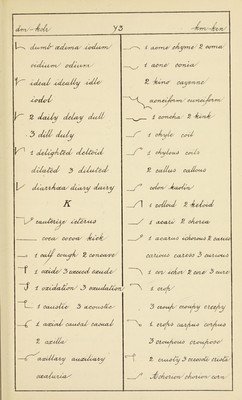 dm - kdr
73
km - krn
dumb adema iodum
iridium odium
ideal ideally idle
iodol
2 daily delay dull
3 dill duly
1 delighted deltoid
dilated 3 diluted
diarrhœa diary dairy
K
cauterize icterus
coca cocoa kick
1 calf cough 2 concave
1 oxide 3 exceed exude
1 oxidation 3 exudation
1 caustic 3 acoustic
1 axial causal casual
2 axilla
axillary auxiliary
oxaluria
1 acme chyme 2 coma
1 acne conia
2 kino cayenne
acneiform cuneiform
1 concha 2 kink
1 chyle coil
1 chylous coils
2 callus callous
colon kaolin
1 colloid 2 keloid
1 acari 2 chorea
1 acarus ichorous 2 caries
carious caress 3 curious
1 cor ichor 2 core 3 cure
1 crop
3 croup croupy creepy
1 crops carpus corpus
3 croupous croupose
2 crusty 3
chorion corn